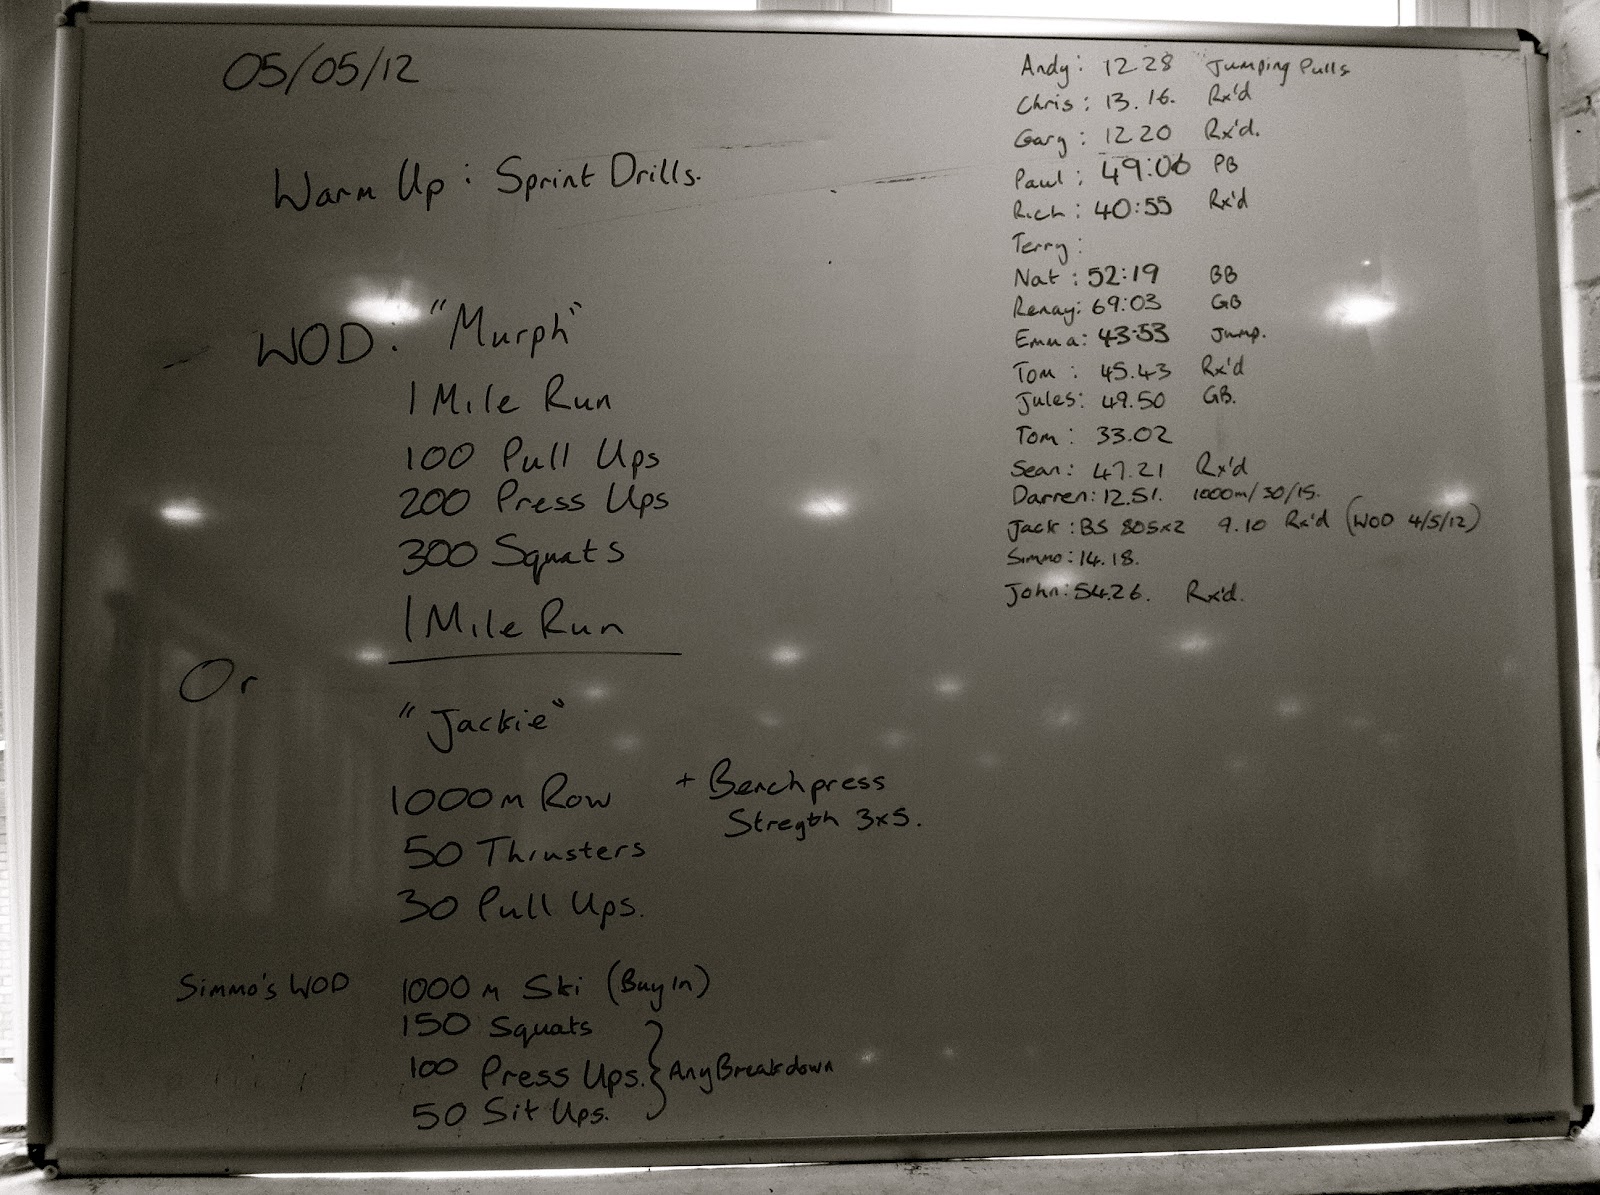 05/05/12
Warm Up : Sprint Drills.
WOD: "Murph"
1 Mile Run
100 Pull Ups
200 Press Ups
300 Squats
1 Mile Run
Or
"Jackie"
1000m Row + Benchpress
Stregth 3x5.
50 Thrusters
30 Pull Ups.
Simmo's WOD 1000m Ski (Buy In)
150 Squats
100 Press Ups. } Any Breakdown
50 Sit Ups.
Andy: 12 28 Jumping Pulls
Chris: 13.16. Rx'd
Gary: 12 20 Rx'd.
Paul: 49:06 PB
Rich: 40:55 Rx'd
Terry:
Nat: 52:19 BB
Renay: 69:03 GB
Emma: 43:53 Jump.
Tom: 45.43 Rx'd
Jules: 49.50 GB.
Tom: 33.02
Sean: 47.21 Rx'd
Darren: 12.51. 1000m/30/15.
Jack: BS 805x2 9.10 Rx'd (WOD 4/5/12)
Simmo: 14.18.
John: 54.26. Rx'd.